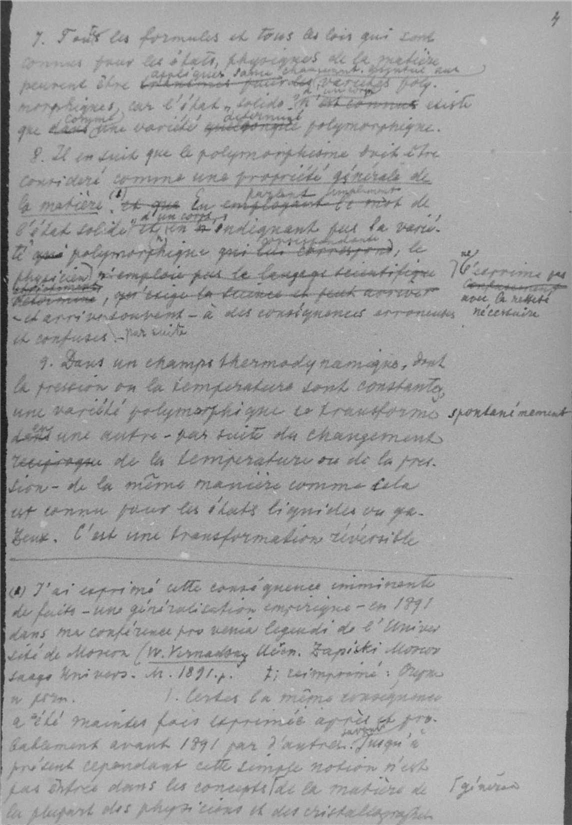 4
7. Toutes les formules et tous les lois qui sont
connues pour les états physiques de la matière
appliquées sans changement
peuvent être variétés poly-
d'un corps
morphiques, car l'état „solide" n'est connue existe
comme déterminée
que dans une variété quelconque polymorphique.
8. Il en suit que le polymorphisme doit être
consideré comme une propriété générale de
parlant simplement
la matière. (1) et que En employant le mot de
d'un corps
l'état solide et en n'indignant pas la varié-
correspondante
té polymorphique qui lui correspond, le
physicien n'emploie pas le langage scientifique
ne s'exprime pas
, qu'exige la science et peut arriver
avec la netteté
nécessaire
- et arrive souvent - à des conséquences erroneuses
et confuses. par suite
9. Dans un champs thermodynamique, dont
la pression ou la température sont constantes,
une variété polymorphique se transforme spontanément
dans une autre - par suite du changement
réciproque de la température ou de la pres-
sion - de la même manière comme cela
est connu pour les états liquides ou ga-
zeux. C'est une transformation réversible
(1) J'ai exprimé cette conséquence imminente
de faits - une généralication empirique - en 1891
dans ma conférence pro venia legendi de l'Univer
sité de Moscou (W. Vernadsky Učen. Zapiski Moscov
skago Univers. M. 1891. p. ); reimprimé:
1. Certes la même conséquence
a été maintes fois exprimée après et pro-
bablement avant 1891 par d'autres. Jusqu'à
présent cependant cette simple notion n'est
pas entrée dans les concepts de la matière de
la plupart des physiciens et des cristallographes